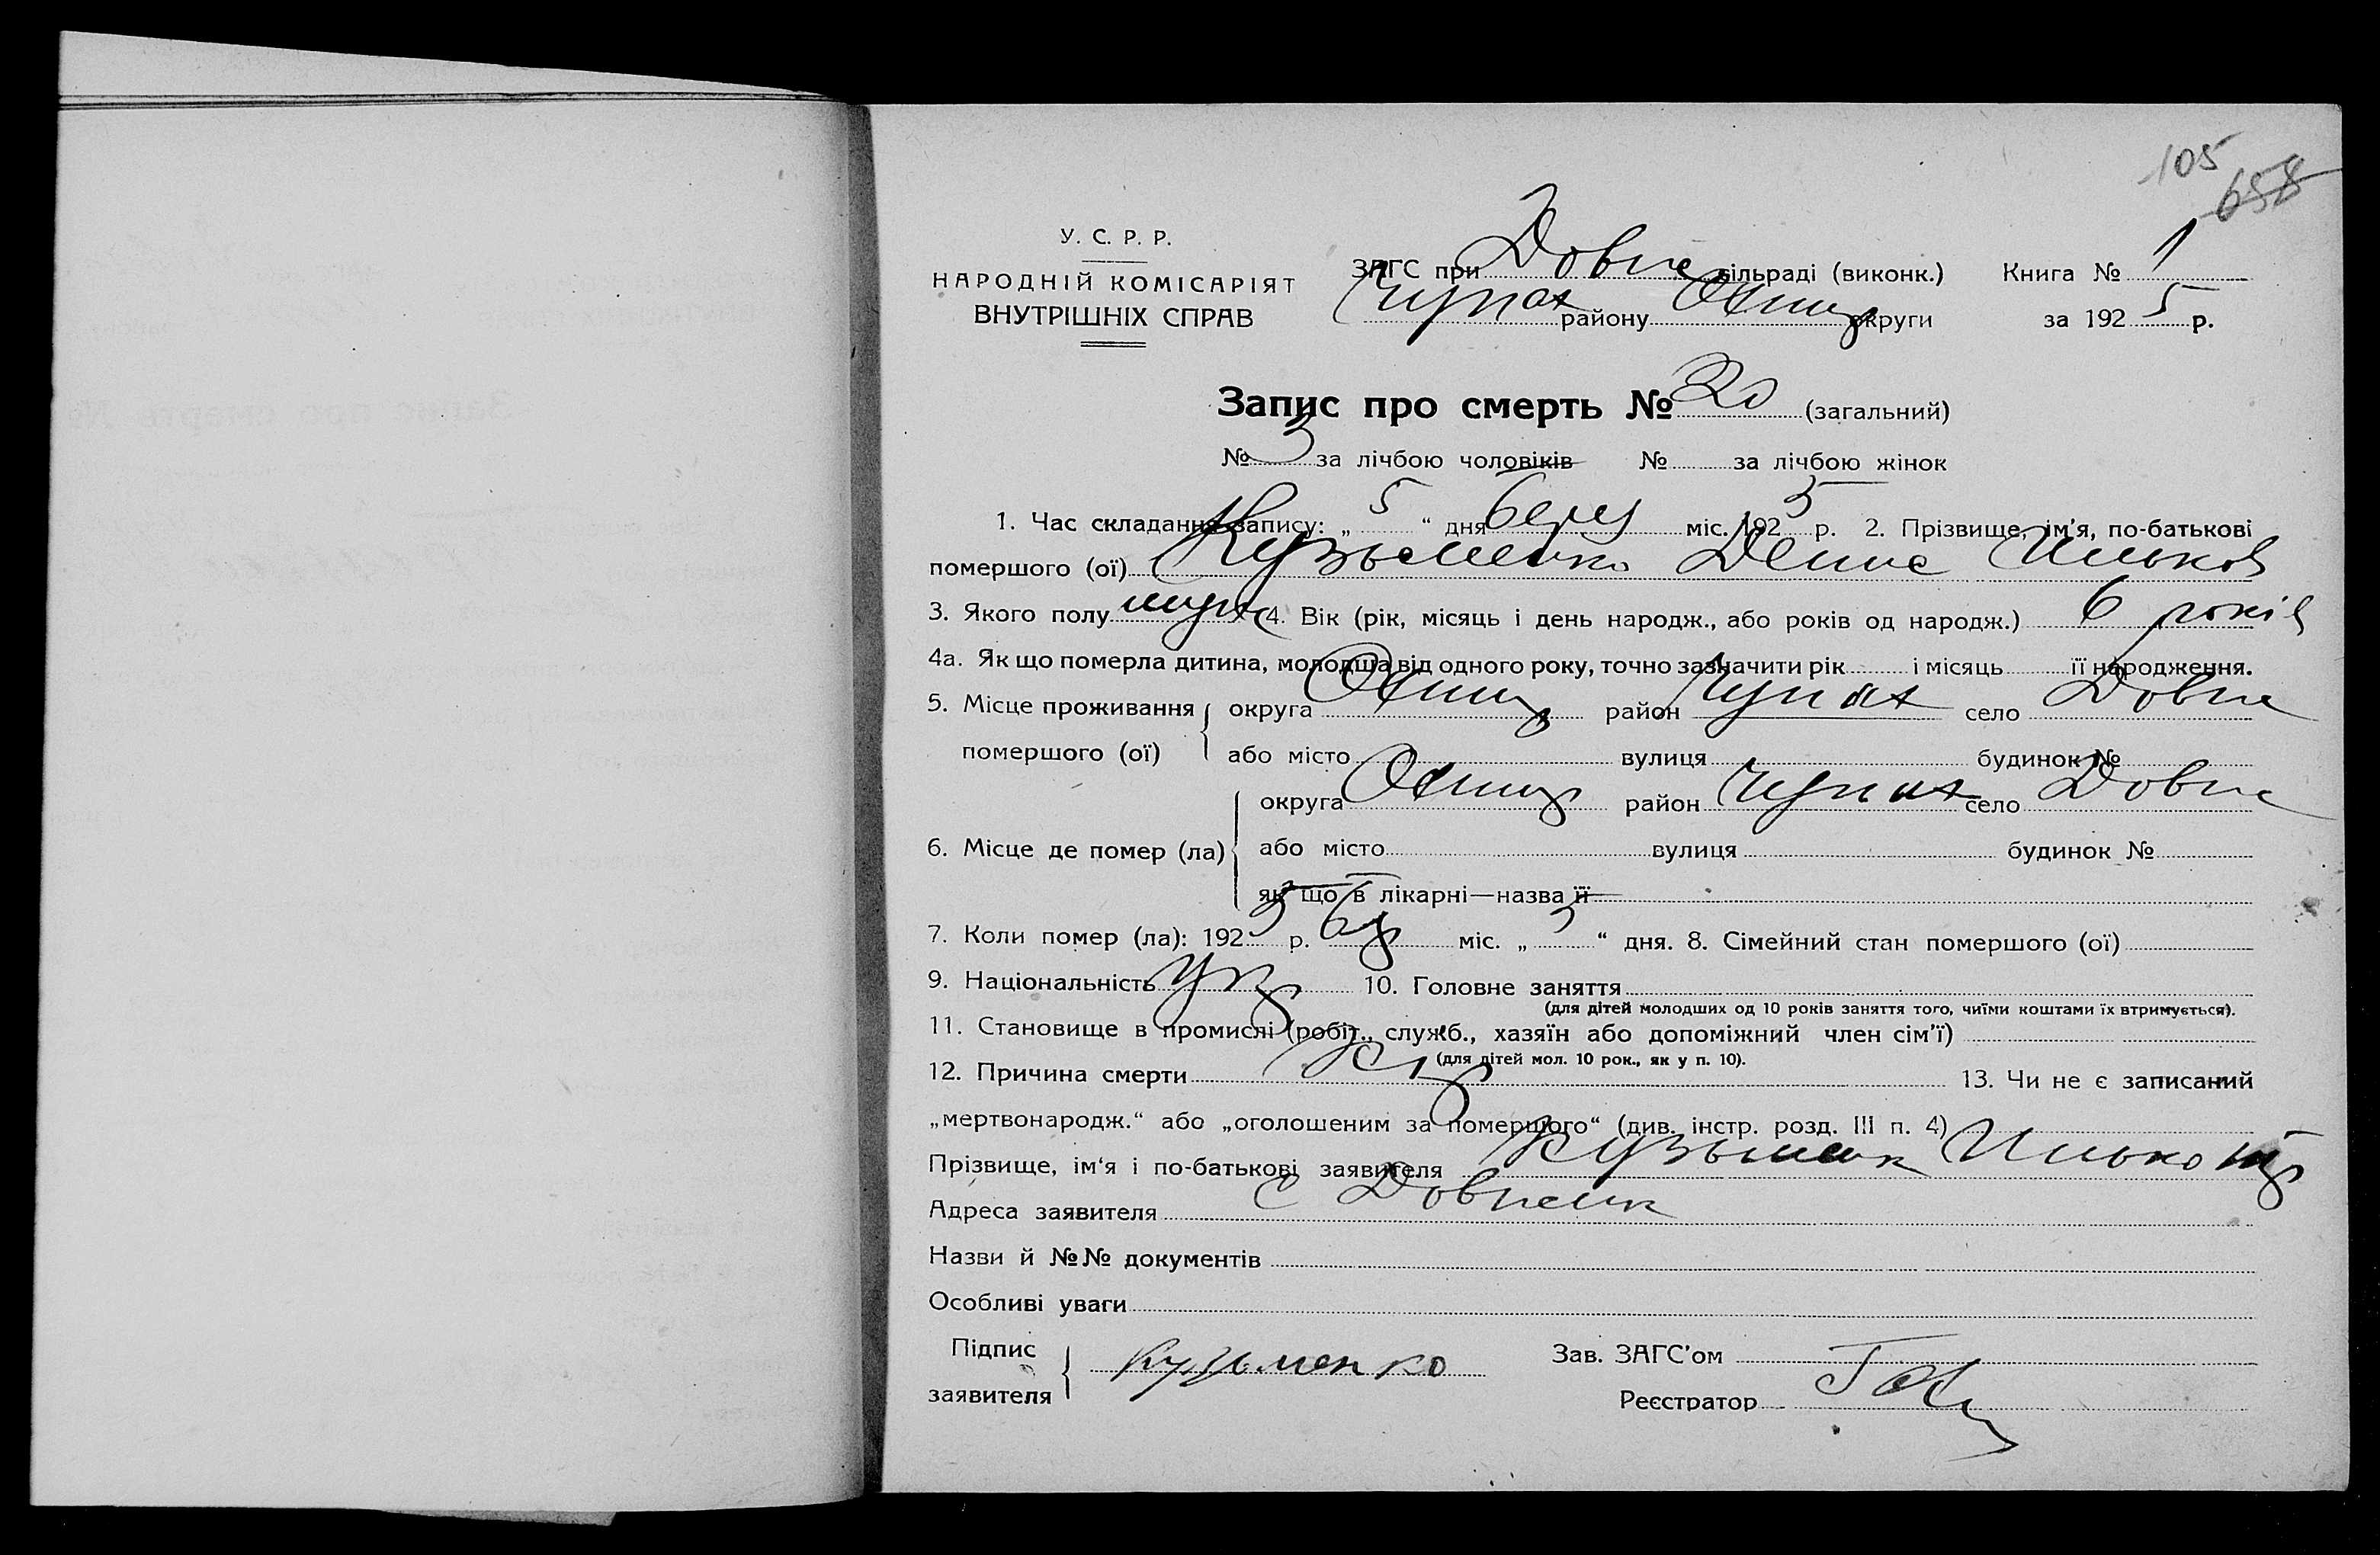 105
658
У. С. Р. Р.
НАРОДНІЙ КОМІСАРІЯТ
ВНУТРІШНІХ СПРАВ
ЗАГС при Довпе сільраді (виконк.) Книга № 1
Чупах району округи за 1925 р.
Запис про смерть № 20 (загальний)
№ 3 за лічбою чоловіків № за лічбою жінок
1. Час складання запису: „5“ дня берез міс. 1925 р. 2. Прізвище, ім'я, по-батькові
помершого (ої) Кузьменко Денис Ильков
3. Якого полу муж 4. Вік (рік, місяць і день народж., або років од народж.) 6 років
4а. Як що померла дитина, молодша від одного року, точно зазначити рік і місяць її народження.
5. Місце проживання округа район Чупах село Довпе
помершого (ої) або місто вулиця будинок №
округа район Чупах село Довпе
6. Місце де помер (ла) або місто вулиця будинок №
як що в лікарні—назва її
7. Коли помер (ла): 1925 р. бер міс. „3“ дня. 8. Сімейний стан помершого (ої)
9. Національність укр 10. Головне заняття
(для дітей молодших од 10 років заняття того, чиїми коштами їх втримується).
11. Становище в промислі (робіт., служб., хазяїн або допоміжний член сім'ї)
(для дітей мол. 10 рок., як у п. 10).
12. Причина смерти 13. Чи не є записаний
„мертвонародж.“ або „оголошеним за помершого“ (див. інстр. розд. III п. 4)
Прізвище, ім'я і по-батькові заявителя Кузьменк Илько
Адреса заявителя С Довпенк
Назви й №№ документів
Особливі уваги
Підпис
заявителя Кузьменко
Зав. ЗАГС'ом
Реєстратор